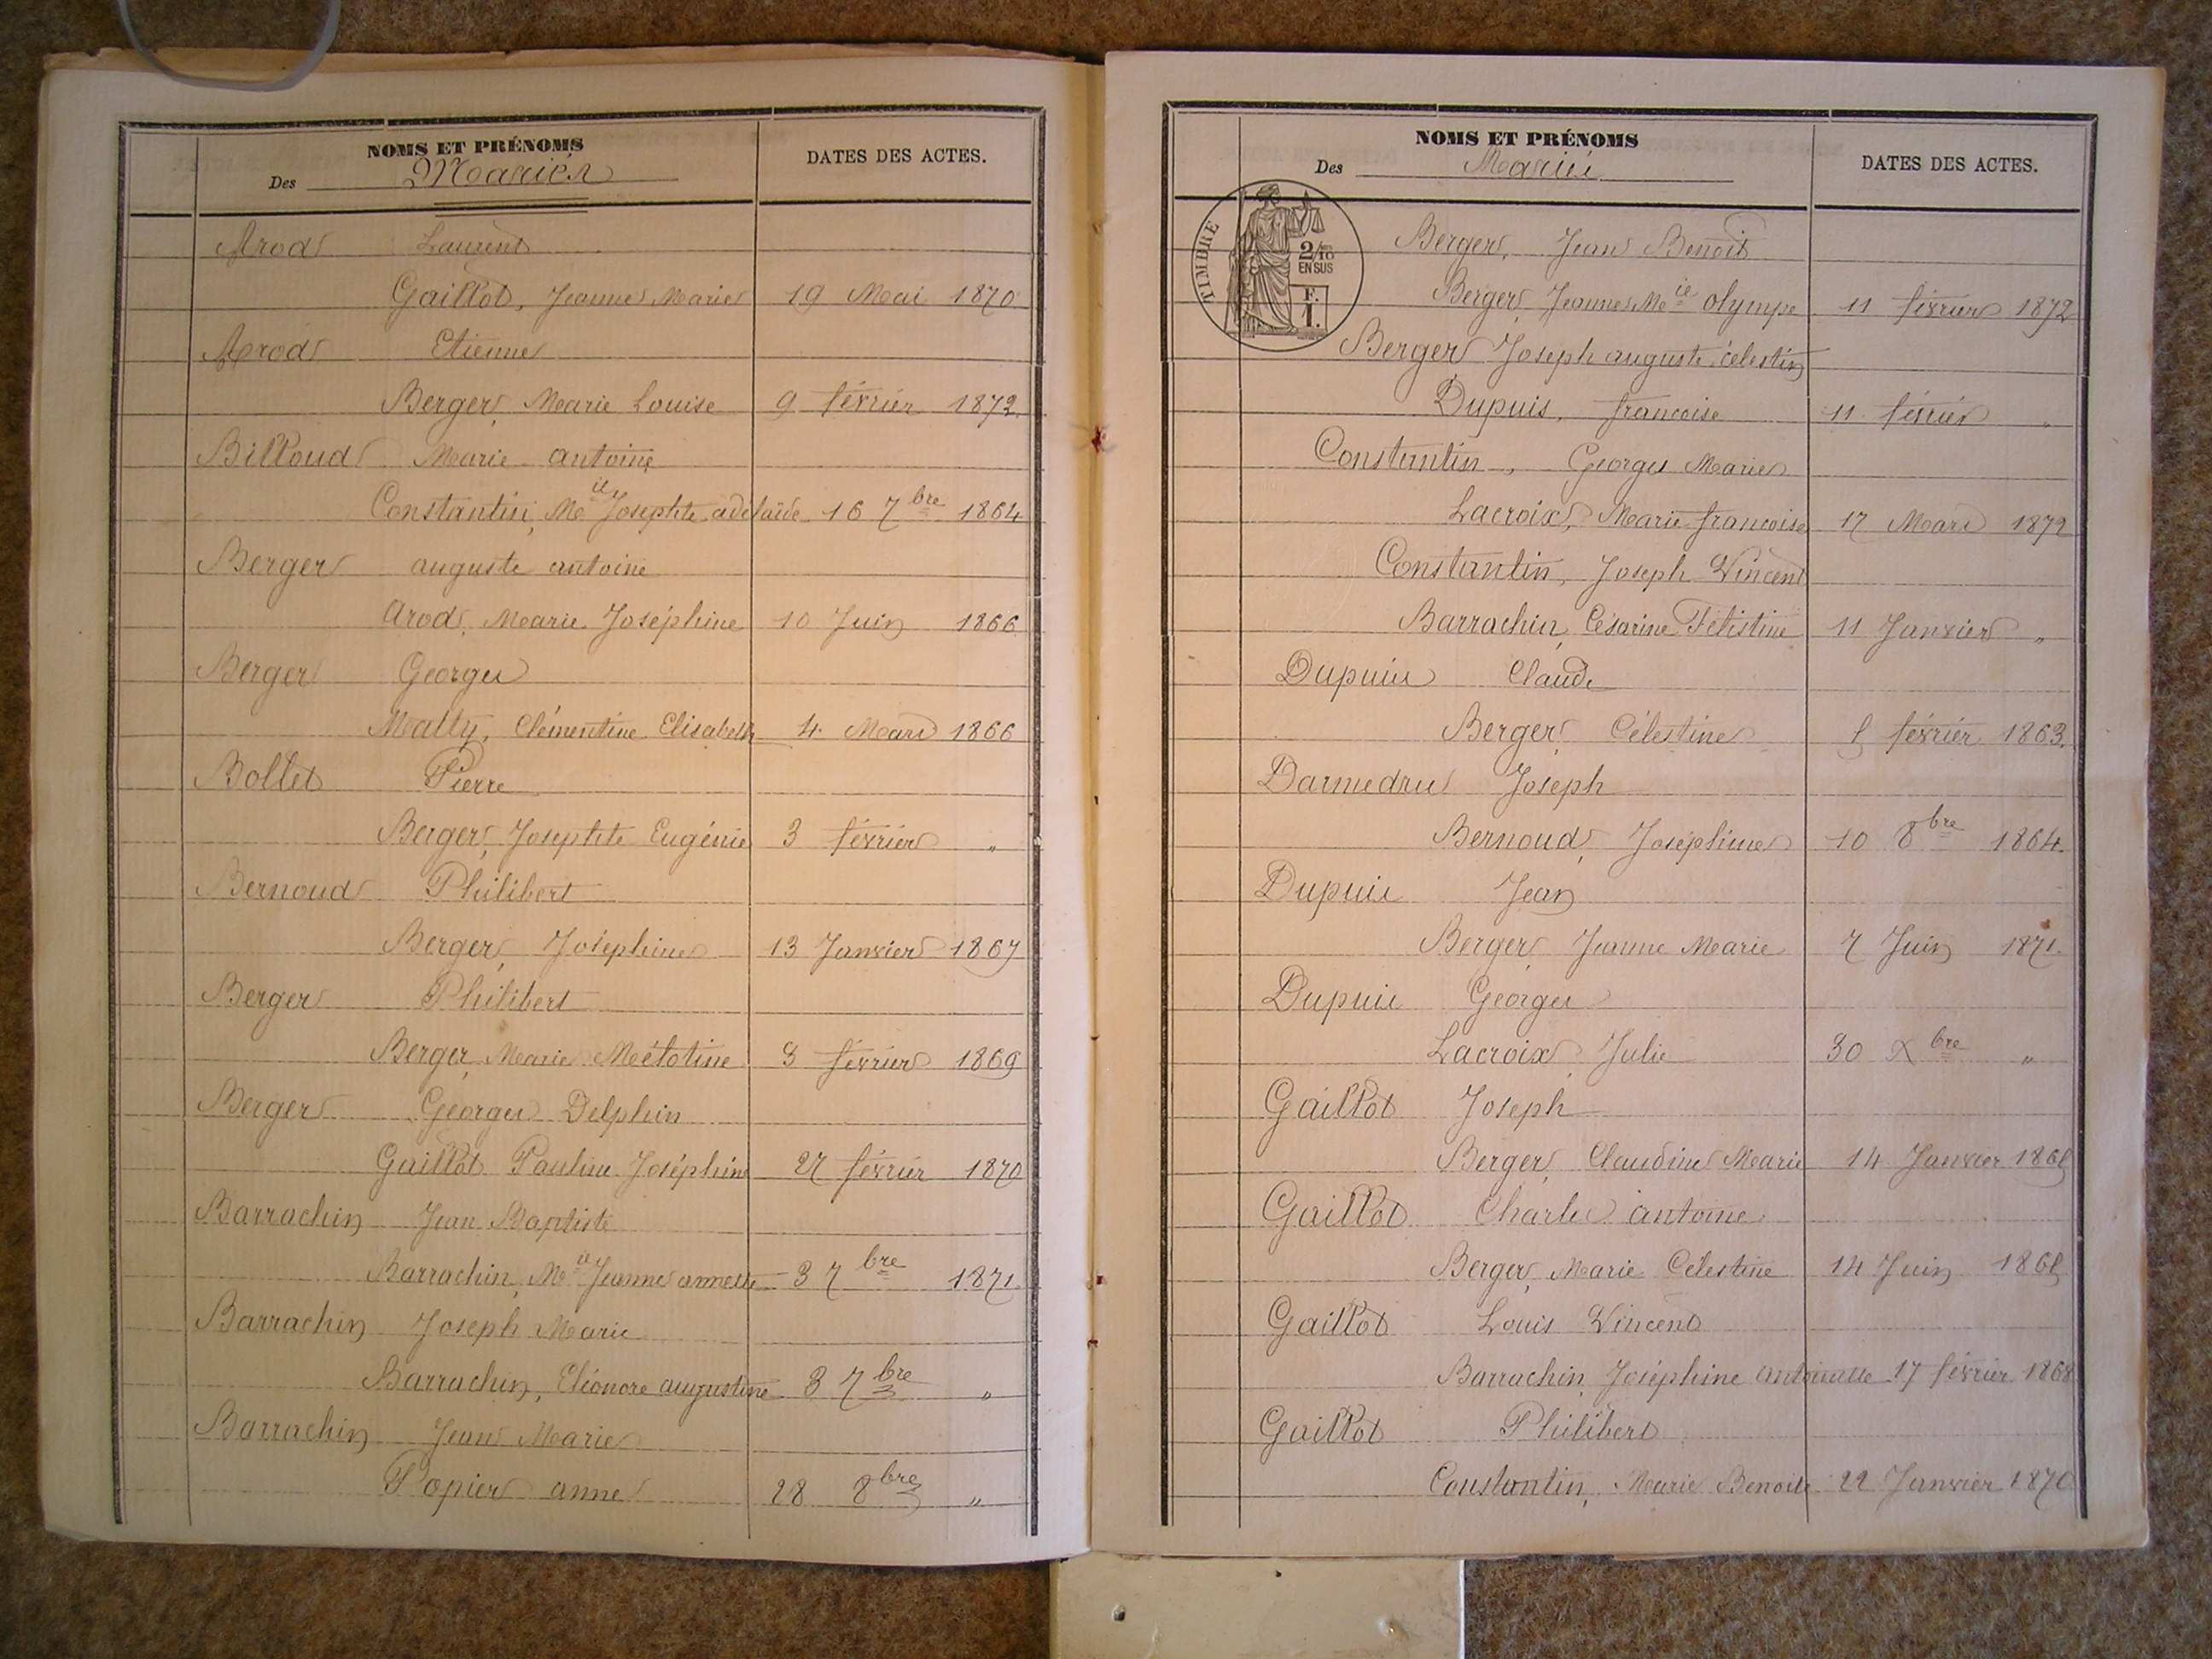 NOMS ET PRÉNOMS
Des Mariés
DATES DES ACTES.
Arod Laurent
Gaillot, Jeanne Marie 19 Mai 1870
Arod Etienne
Berger, Marie Louise 9 février 1872.
Billoud Marie antoine
Constantin, Mie Josephte adélaïde 16 7bre 1864
Berger auguste antoine
Arod, Marie Joséphine 10 Juin 1866
Berger Georges
Mally, Clémentine Elisabeth 4 Mars 1866
Bollet Pierre
Berger, Josephte Eugénie 3 février "
Bernoud Philibert
Berger, Joséphine 13 Janvier 1867
Berger Philibert
Berger, Marie Métotine 8 février 1869
Berger Georges Delphin
Gaillot Pauline Joséphine 27 février 1870
Barrachin Jean Baptiste
Barrachin, Mie Jeanne annette 3 7bre 1871.
Barrachin Joseph Marie
Barrachin, Eléonore augustine 3 7bre "
Barrachin Jean Marie
Popier anne 28 8bre "
NOMS ET PRÉNOMS
Des Mariés
DATES DES ACTES.
TIMBRE
2/10
EN SUS
F.
1.
Berger, Jean Benoit
Berger, Jeanne Mie olympe 11 février 1872
Berger Joseph auguste célestin
Dupuis, francoise 11 février "
Constantin, Georges Marie
Lacroix, Marie francoise 17 Mars 1872
Constantin, Joseph Vincent
Barrachin, Césarine Félistine 11 Janvier "
Dupuis Claude
Berger, Célestine 8 février 1863.
Darmedru Joseph
Bernoud, Joséphine 10 8bre 1864.
Dupuis Jean
Berger, Jeanne Marie 7 Juin 1871.
Dupuis Georges
Lacroix, Julie 30 Xbre "
Gaillot Joseph
Berger, Claudine Marie 14 Janvier 1868
Gaillot Charles antoine
Berger, Marie Célestine 14 Juin 1868
Gaillot Louis Vincent
Barrachin, Joséphine antoinette 17 février 1868
Gaillot Philibert
Constantin, Marie Benoite 22 Janvier 1870